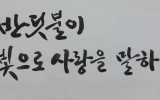 반딧불이
빛으로 사랑을 말하